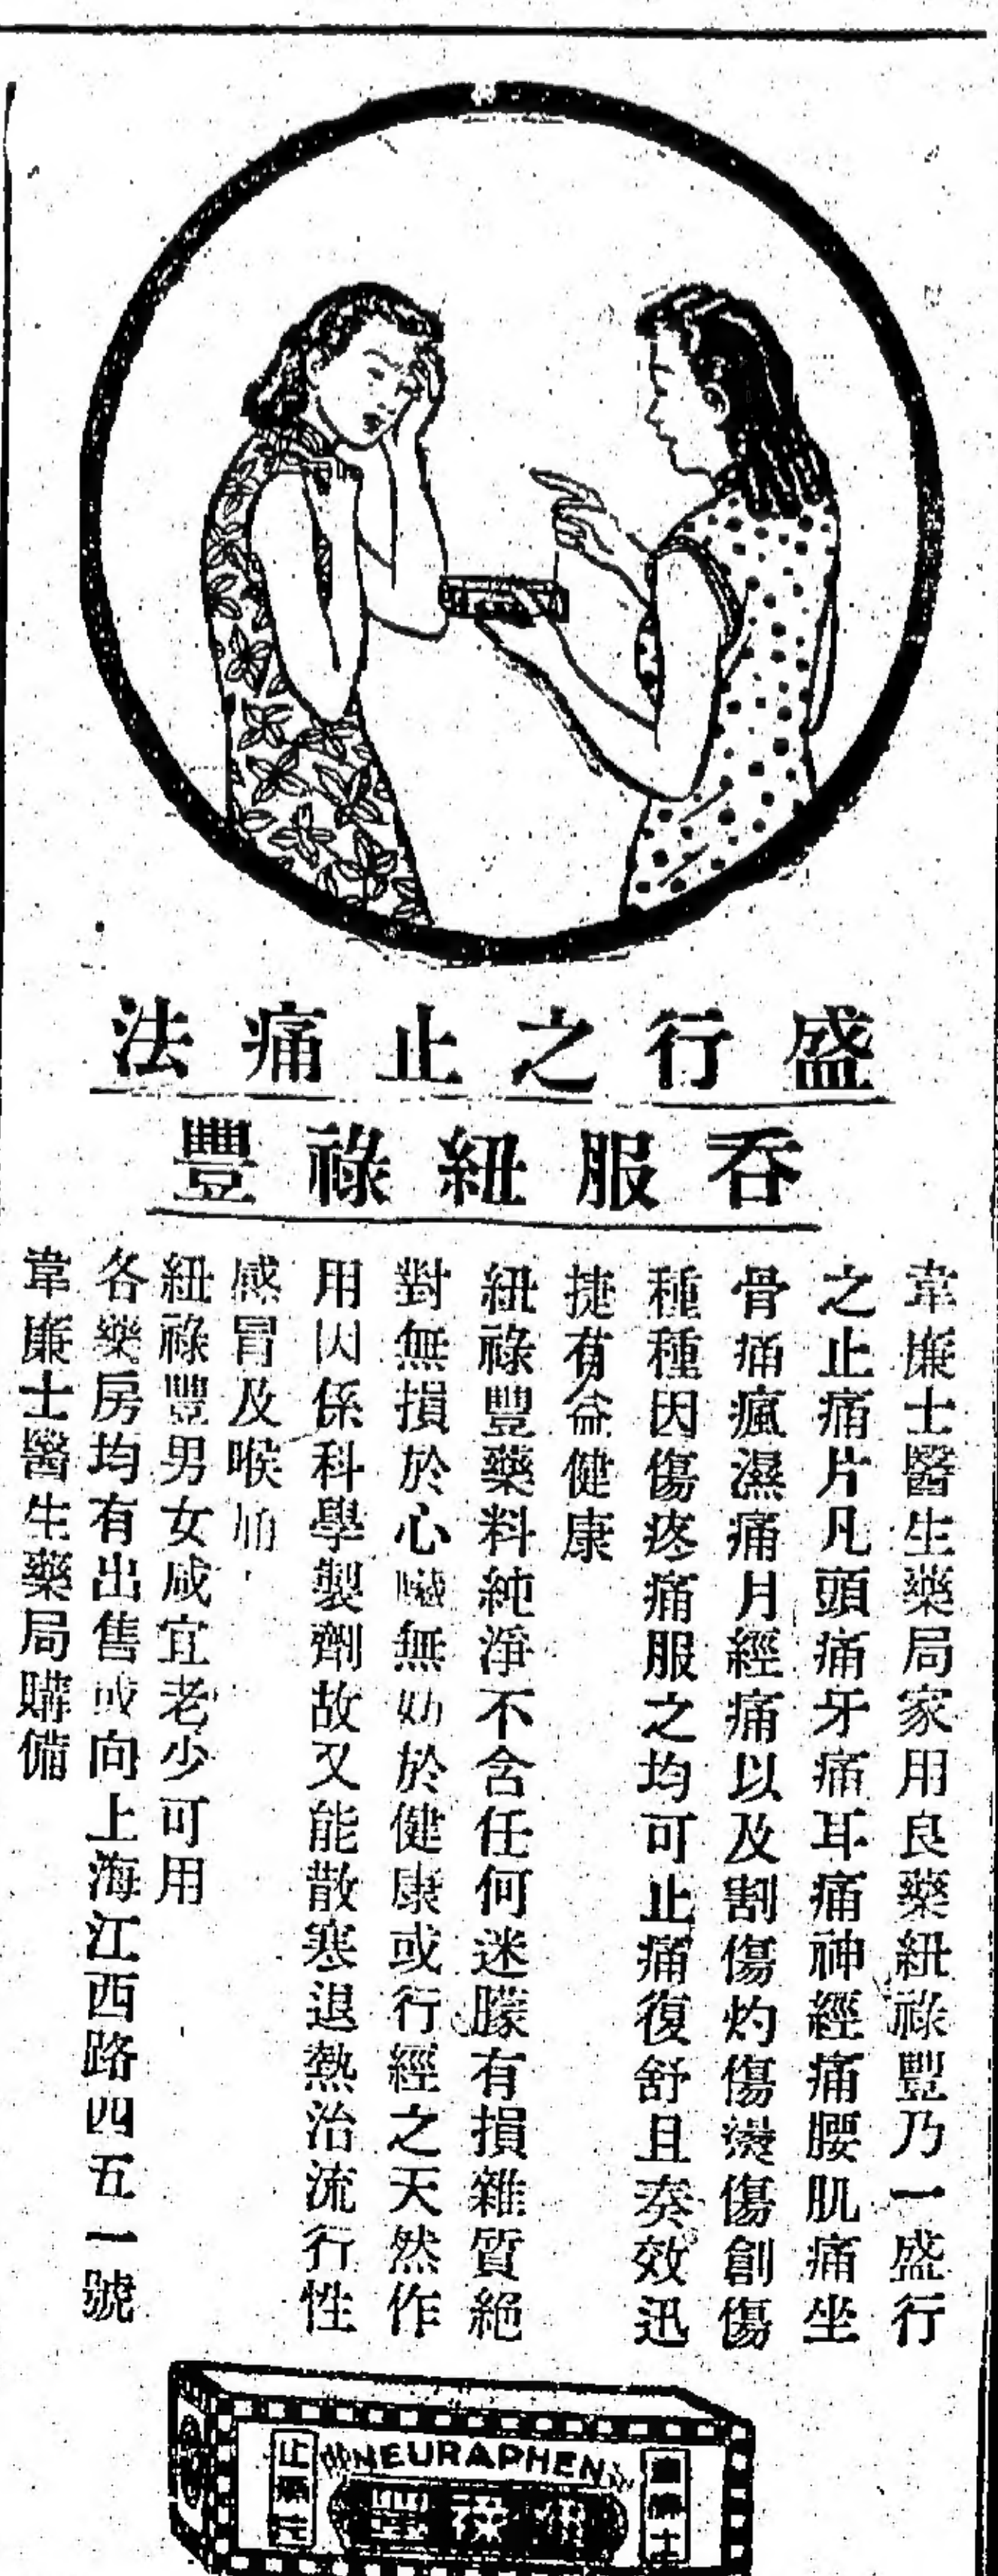 盛行之止痛法
吞服紐祿豐
韋廉士醫生藥局家用良藥紐祿豐乃一盛行
之止痛片凡頭痛牙痛耳痛神經痛腰肌痛坐
骨痛瘋濕痛月經痛以及割傷灼傷燙傷創傷
種種因傷疼痛服之均可止痛復舒且奏效迅
捷有益健康
紐祿豐藥料純淨不含任何迷朦有損雜質絕
對無損於心臟無妨於健康或行經之天然作
用因係科學製劑故又能散寒退熱治流行性
感冒及喉痛
紐祿豐男女咸宜老少可用
各藥房均有出售或向上海江西路四五一號
韋廉士醫生藥局購備
NEURAPHEN
紐祿豐
止痛
韋廉士